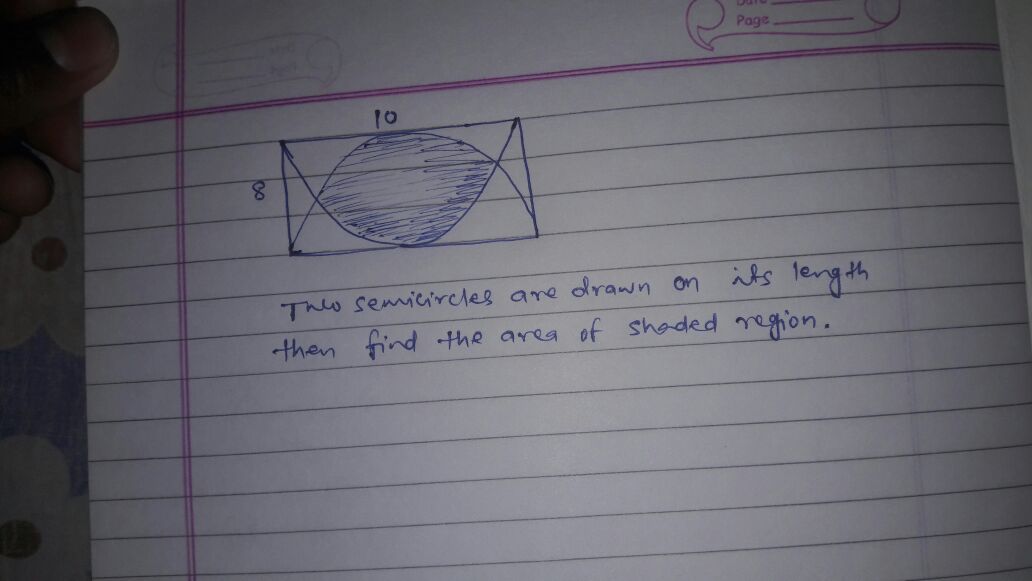 Date
Page
10
8
Two semicircles are drawn on its length
then find the area of shaded region.